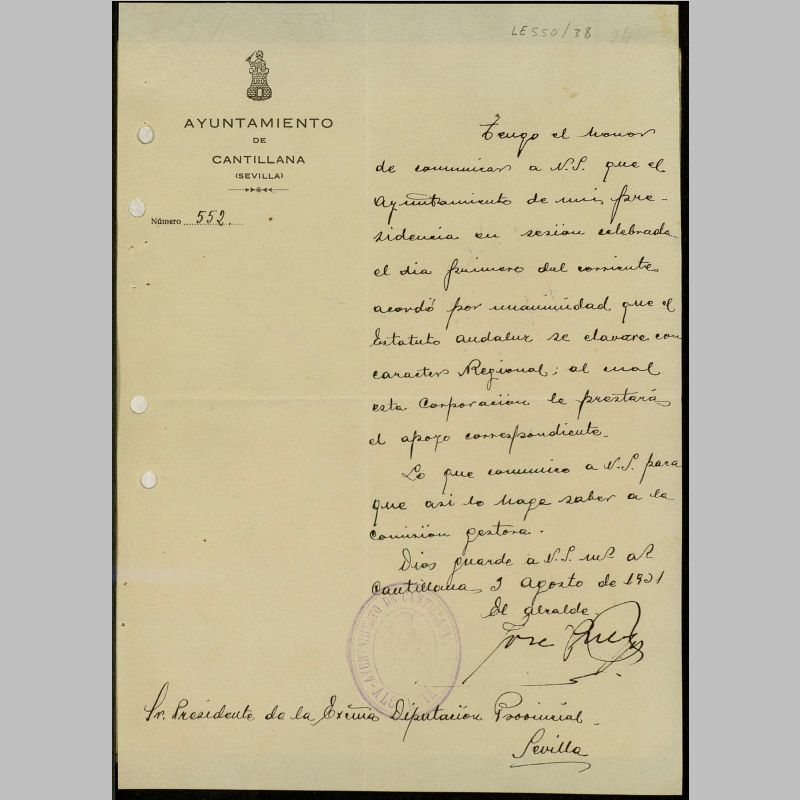 LE550/38
AYUNTAMIENTO
DE
CANTILLANA
(SEVILLA)
Número 552.
Tengo el honor
de comunicar a V.S. que el
Ayuntamiento de mi pre-
sidencia en sesion celebrada
el dia primero del corriente
acordó por unanimidad que el
Estatuto andaluz se elavore con
caracter Regional; al cual
esta Corporación le prestará
el apoyo correspondiente.
Lo que comunico a V.S. para
que asi lo haga saber a la
Comisión gestora.
Dios guarde a V.S. ms. as.
Cantillana 3 Agosto de 1931
El alcalde
Jose
AYUNTAMIENTO DE CANTILLANA
ALCALDIA
Sr. Presidente de la Excma Diputación Provincial.
Sevilla